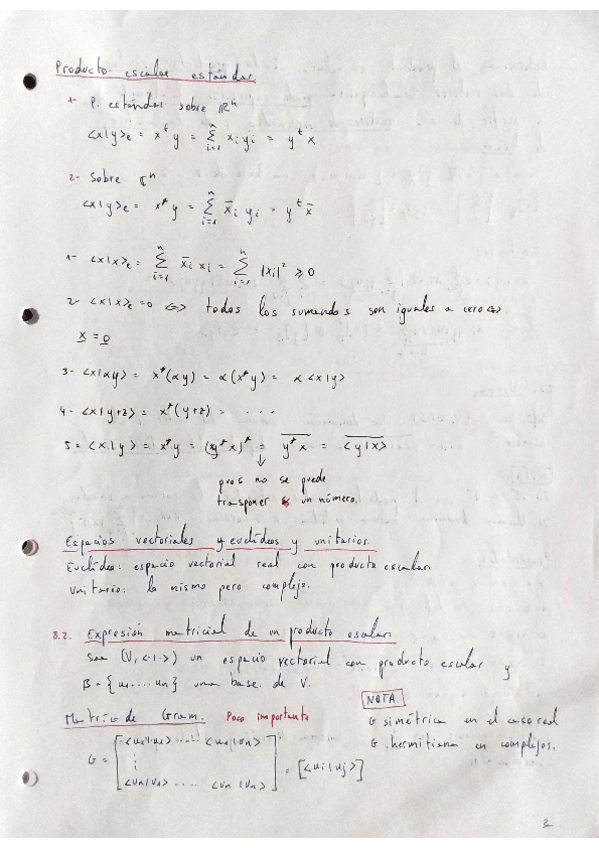 Producto escalar estándar.
1- P. estándar sobre ℝⁿ
<x|y>ₑ = xᵗ y = Σⁿᵢ₌₁ xᵢ yᵢ = yᵗ x
2- Sobre ℂⁿ
<x|y>ₑ = x* y = Σⁿᵢ₌₁ x̄ᵢ yᵢ = yᵗ x̄
1- <x|x>ₑ = Σⁿᵢ₌₁ x̄ᵢ xᵢ = Σⁿᵢ₌₁ |xᵢ|² ⩾ 0
2- <x|x>ₑ = 0 <=> todos los sumandos son iguales a cero <=>
x = 0
3- <x|αy> = x*(αy) = α(x*y) = α <x|y>
4- <x|y+z> = x*(y+z) = · · ·
5= <x|y> = x*y = (y*x)* = \overline{y*x} = \overline{<y|x>}
↓
pues no se puede
transponer un número.
Espacios vectoriales y euclídeos y unitarios.
Euclídeo: espacio vectorial real con producto escalar.
Unitario: lo mismo pero complejo.
8.2. Expresión matricial de un producto escalar.
Sea (V, <·|·>) un espacio vectorial con producto escalar y
B = {u₁ .... uₙ} una base de V.
NOTA
Matriz de Gram. Poco importante
G simétrica en el caso real
G hermitiana en complejos.
G = [ <u₁|u₁> ..... <u₁|uₙ> ⋮ <uₙ|u₁> .... <uₙ|uₙ> ] = [<uᵢ|uⱼ>]
2